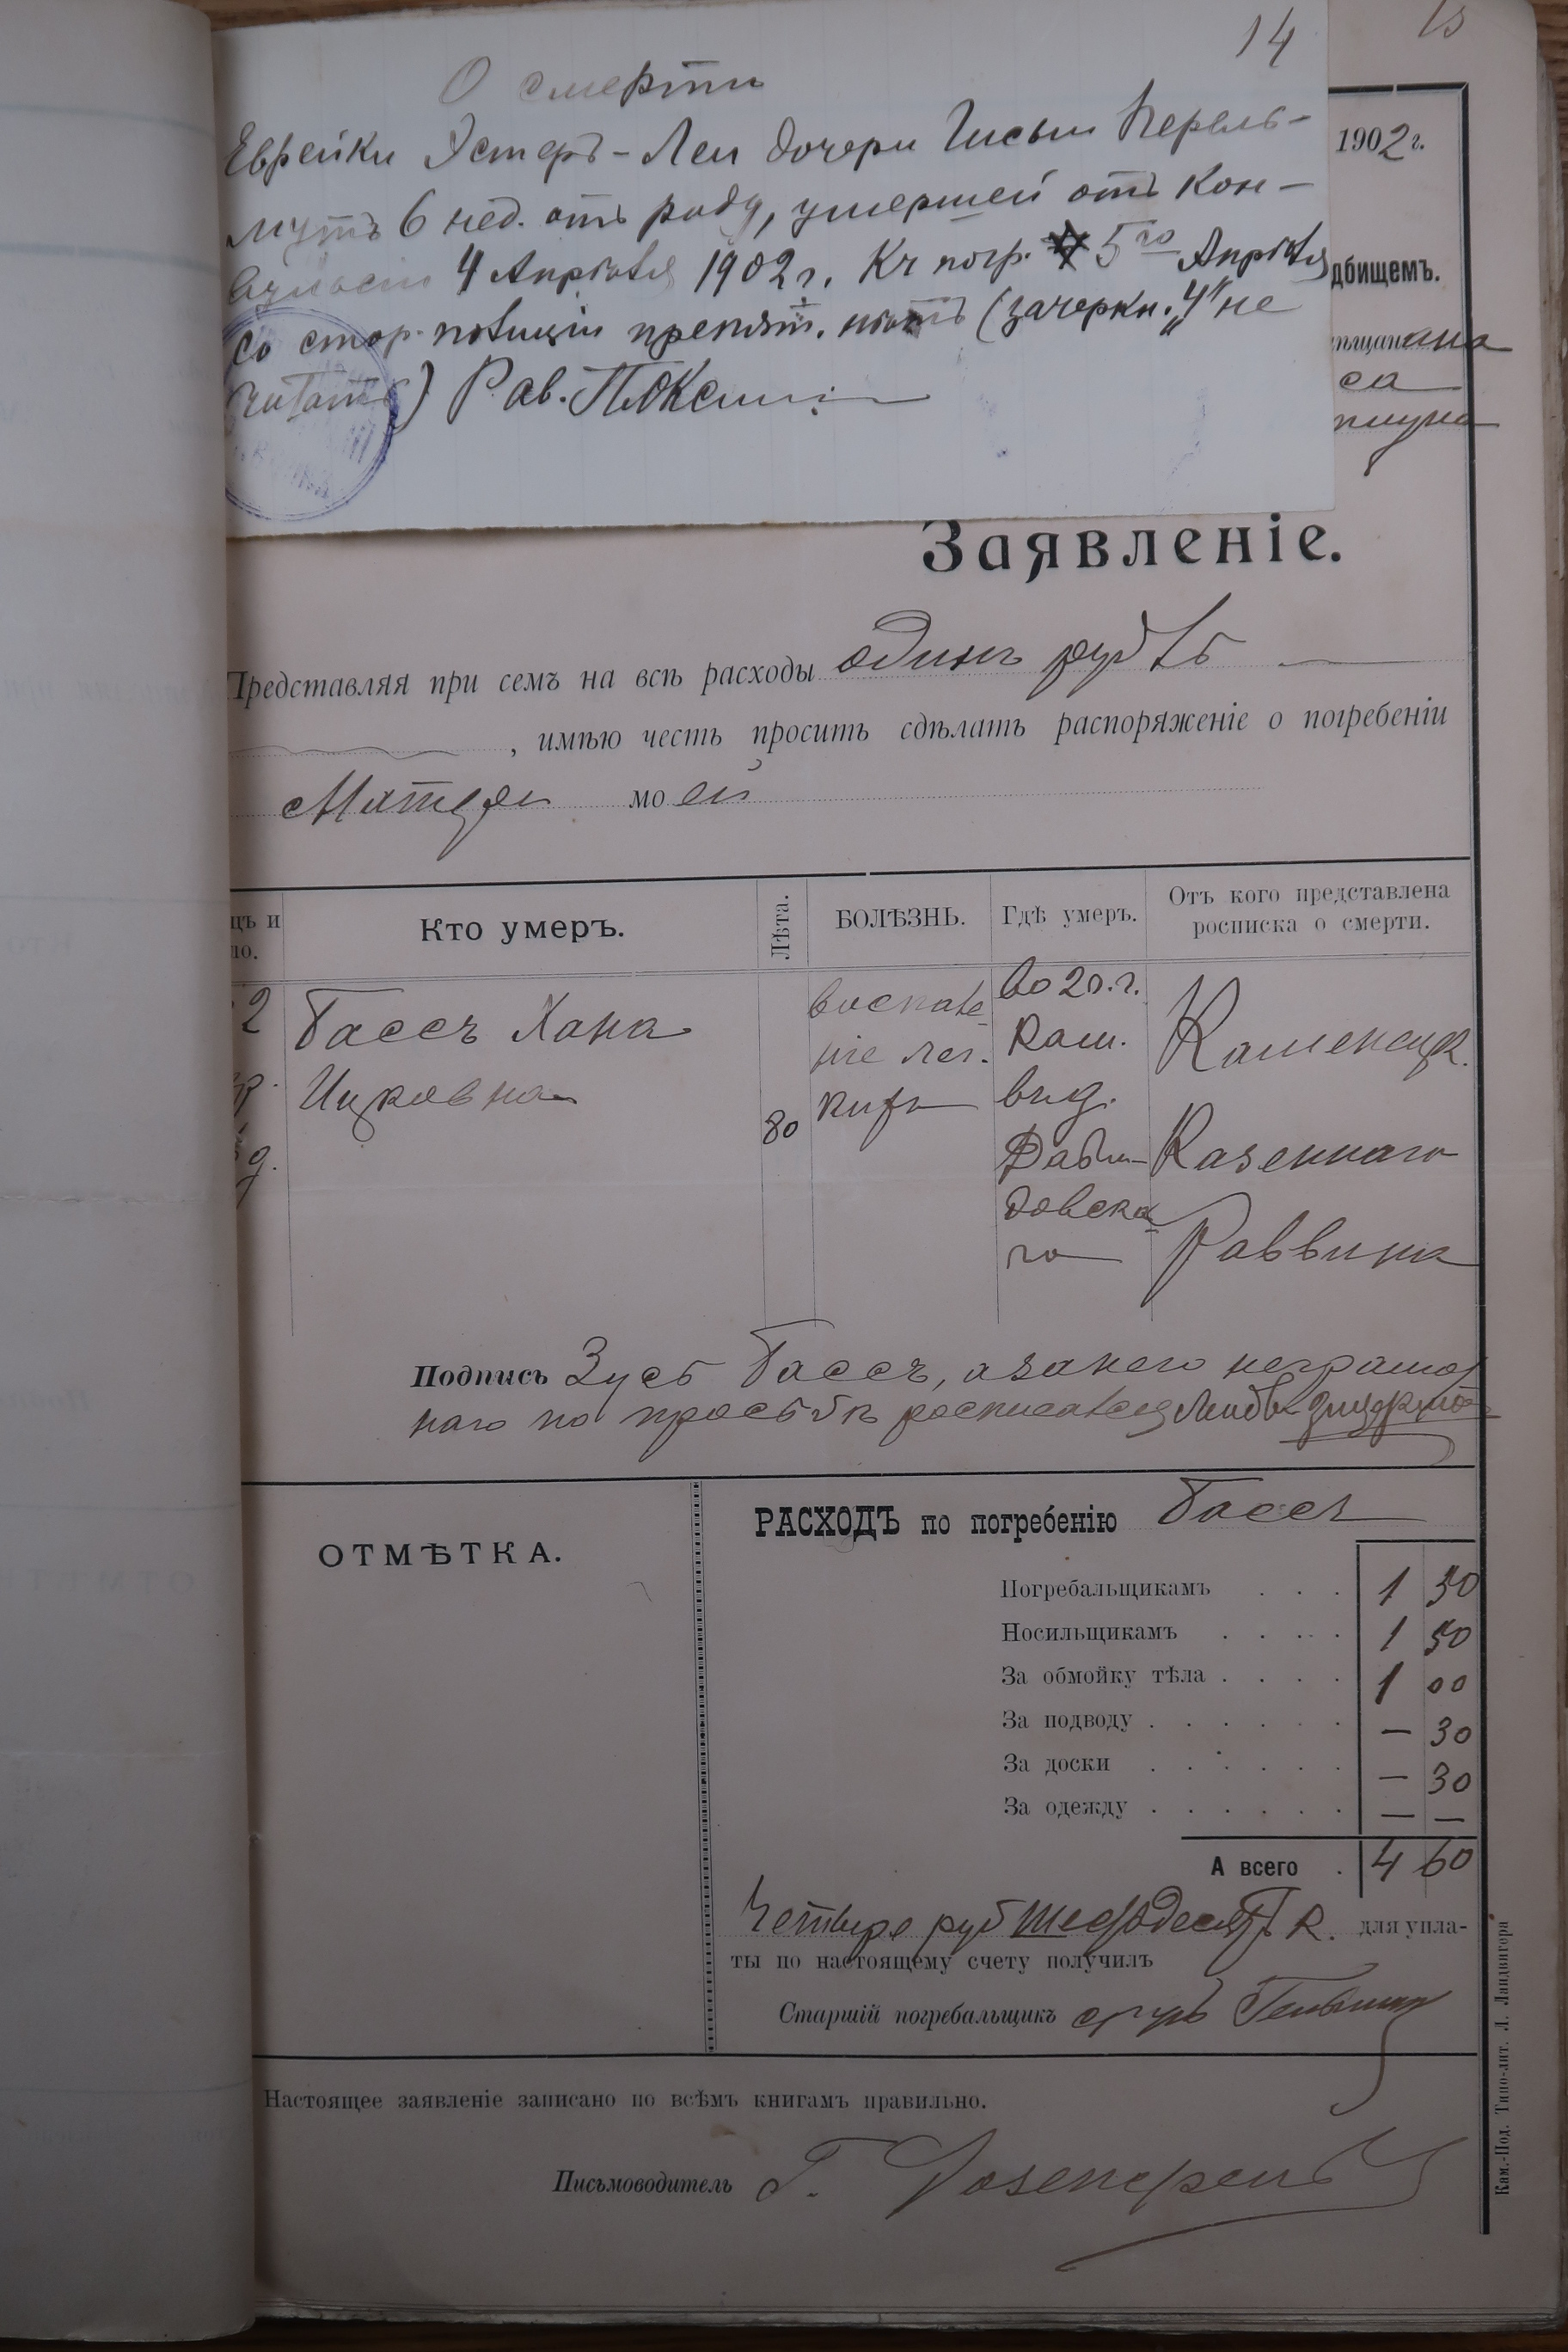 14
15
О смерти
Еврейки Эстеръ-Леи дочери Гисьи Перель-
мутъ 6 нед. отъ роду, умершей отъ кон-
вульсіи 4 Апрѣля 1902 г. Къ погр. 5го Апрѣля
со стор. полиціи препят. нѣтъ (зачеркн. "4" не
читать) Рав.
1902 г.
дбищемъ.
ѣщанина
са
Заявленіе.
Представляя при семъ на всѣ расходы одинъ рубль
, имѣю честь просить сдѣлать распоряженіе о погребеніи
Матери моей
цъ и
ло.
Кто умеръ.
Лѣта.
БОЛѢЗНЬ.
Гдѣ умеръ.
Отъ кого представлена
росписка о смерти.
2
Бассъ Хана
Ицковна
80
воспале-
ніе лег-
кихъ
во 2о.г.
Кам.
вид.
Давы-
довска-
го
Каменецк.
Казеннаго
Раввина
Подпись Зусь Бассъ, а за него неграмот
наго по просьбѣ росписался
ОТМѢТКА.
РАСХОДЪ по погребенію Бассъ
Погребальщикамъ . . . 1 50
Носильщикамъ . . . . 1 50
За обмойку тѣла . . . . 1 00
За подводу . . . . . . — 30
За доски . . . . . . — 30
За одежду . . . . . . — —
А всего . 4 60
Четыре руб шестьдесятъ к. для упла-
ты по настоящему счету получилъ
Старшій погребальщикъ
Настоящее заявленіе записано по всѣмъ книгамъ правильно.
Письмоводитель Г.
Кам.-Под. Типо-лит. Л. Ландвигера